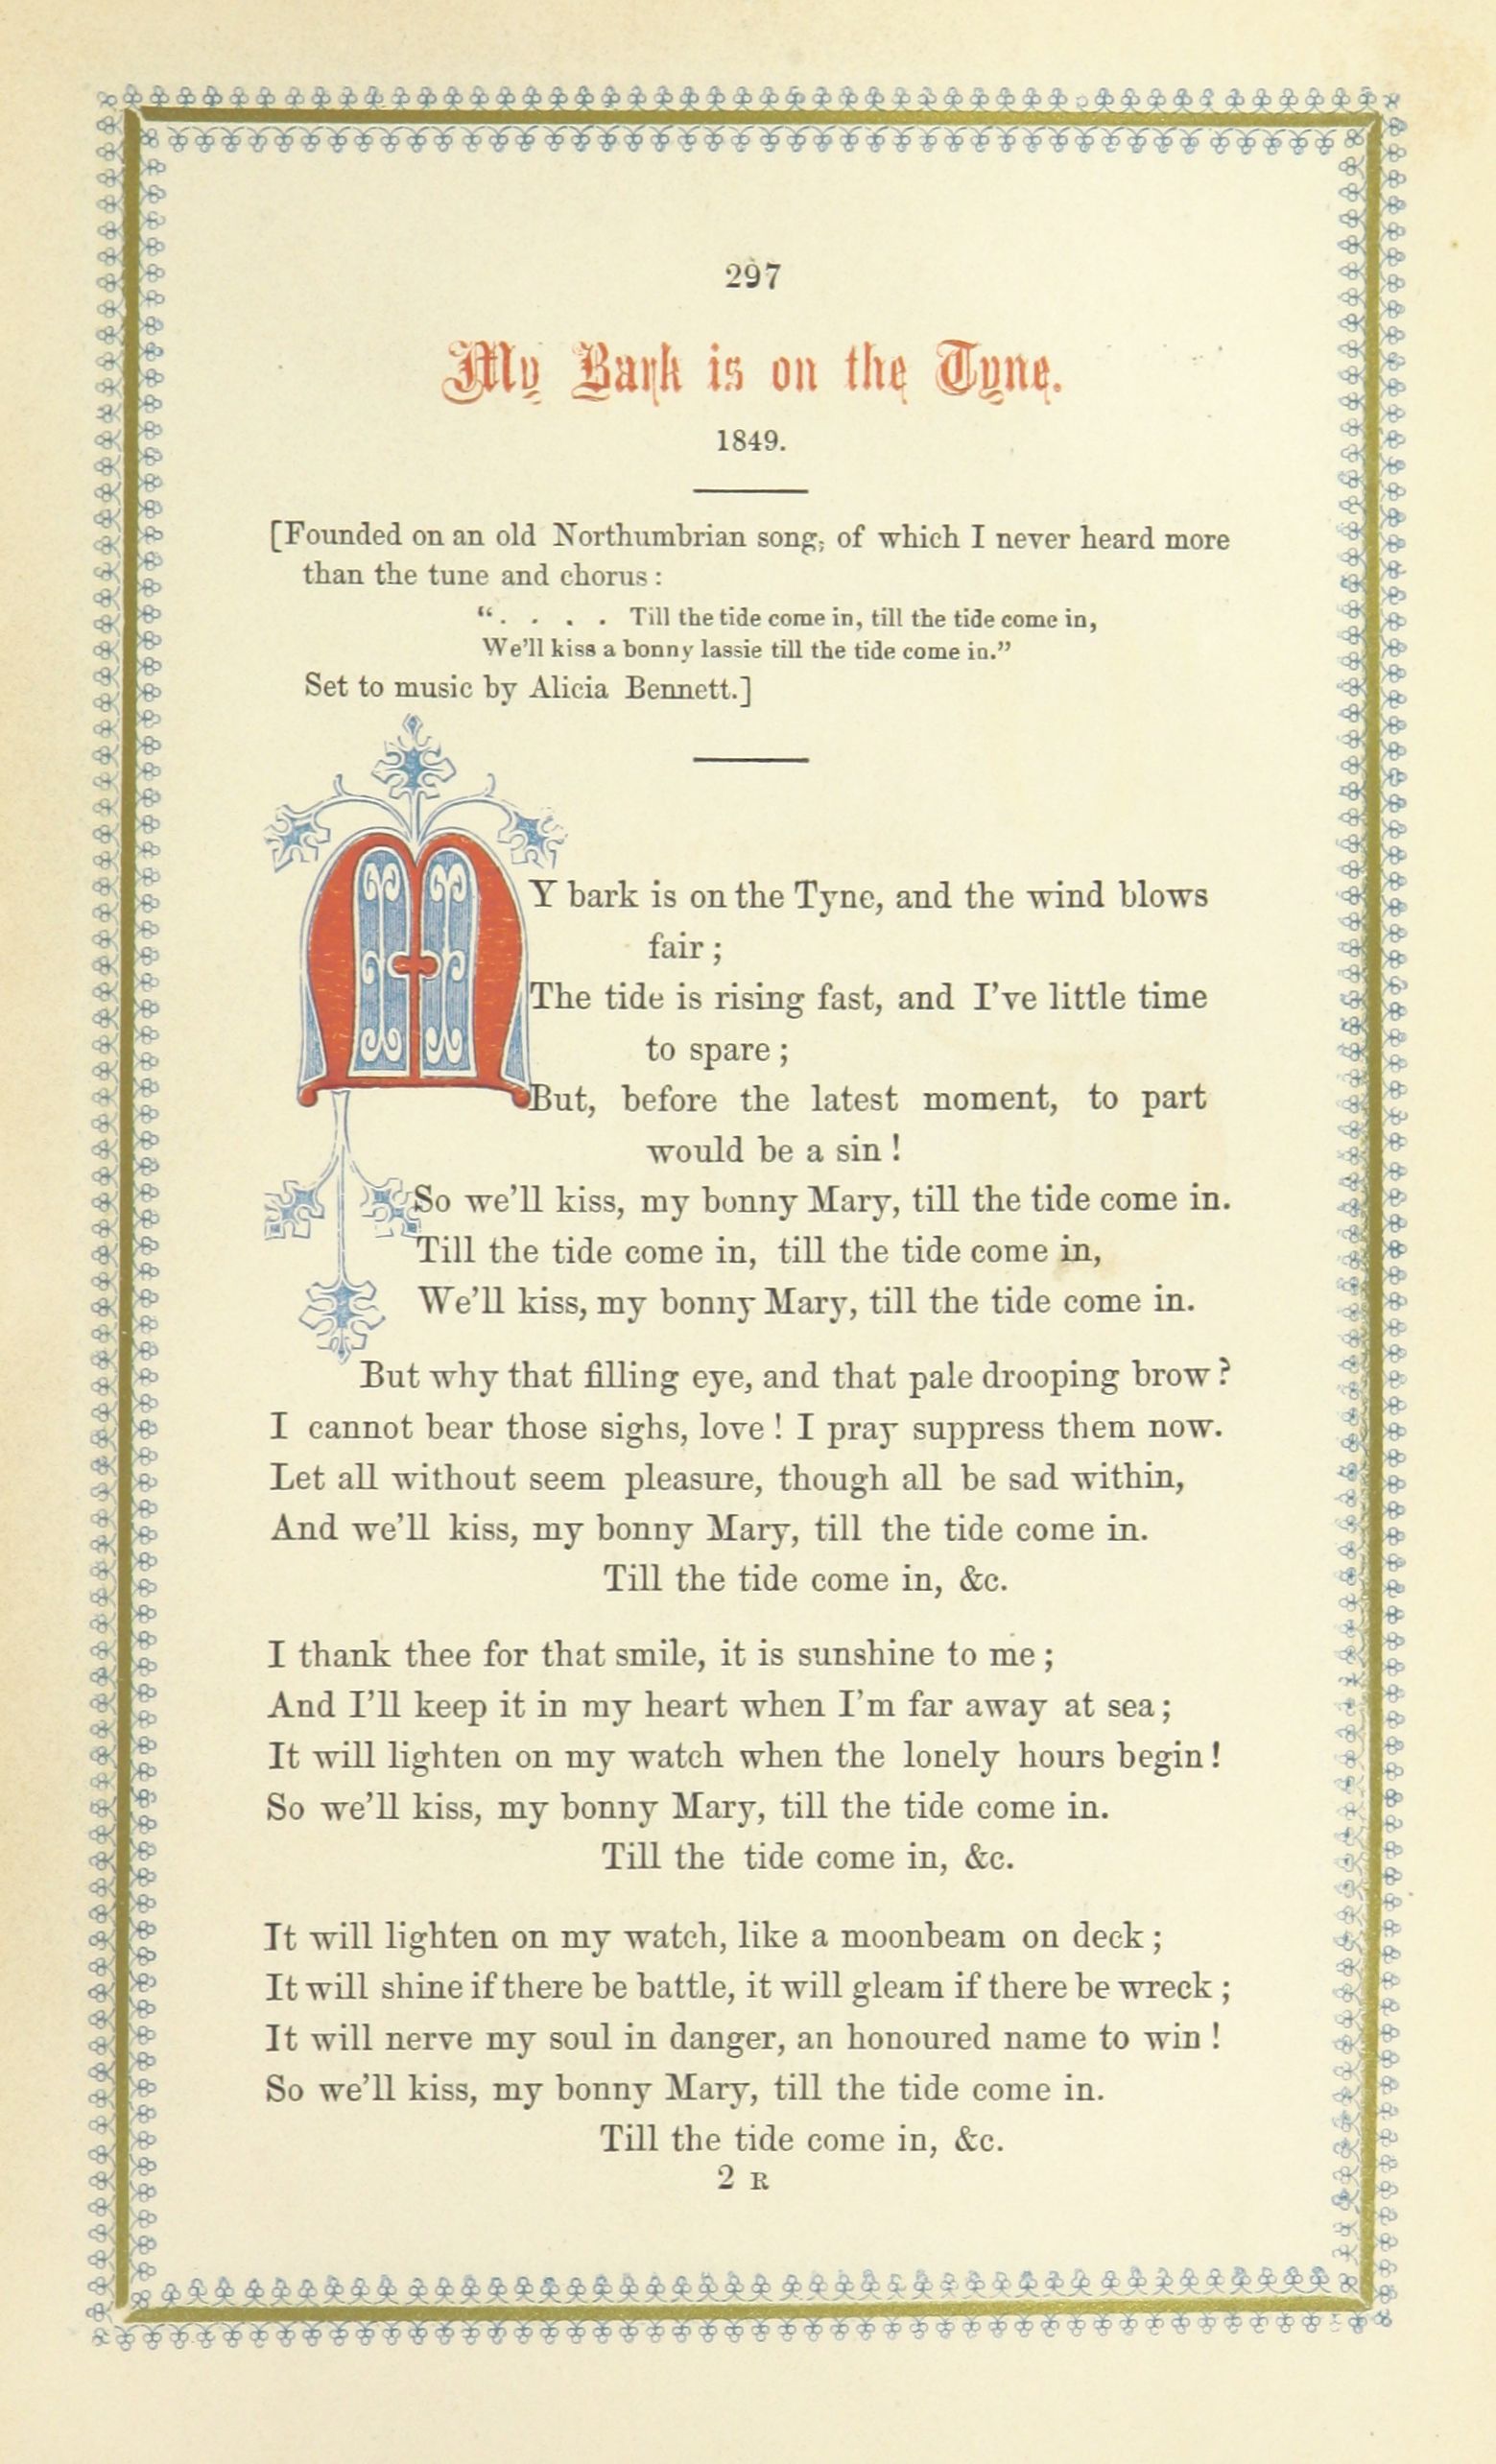 297
My Bark is on the Tyne.
1849.
[Founded on an old Northumbrian song, of which I never heard more
than the tune and chorus:
“. . . . Till the tide come in, till the tide come in,
We’ll kiss a bonny lassie till the tide come in.”
Set to music by Alicia Bennett.]
MY bark is on the Tyne, and the wind blows
fair;
The tide is rising fast, and I’ve little time
to spare;
But, before the latest moment, to part
would be a sin!
So we’ll kiss, my bonny Mary, till the tide come in.
Till the tide come in, till the tide come in,
We’ll kiss, my bonny Mary, till the tide come in.
But why that filling eye, and that pale drooping brow?
I cannot bear those sighs, love! I pray suppress them now.
Let all without seem pleasure, though all be sad within,
And we’ll kiss, my bonny Mary, till the tide come in.
Till the tide come in, &c.
I thank thee for that smile, it is sunshine to me;
And I’ll keep it in my heart when I’m far away at sea;
It will lighten on my watch when the lonely hours begin!
So we’ll kiss, my bonny Mary, till the tide come in.
Till the tide come in, &c.
It will lighten on my watch, like a moonbeam on deck;
It will shine if there be battle, it will gleam if there be wreck;
It will nerve my soul in danger, an honoured name to win!
So we’ll kiss, my bonny Mary, till the tide come in.
Till the tide come in, &c.
2 R